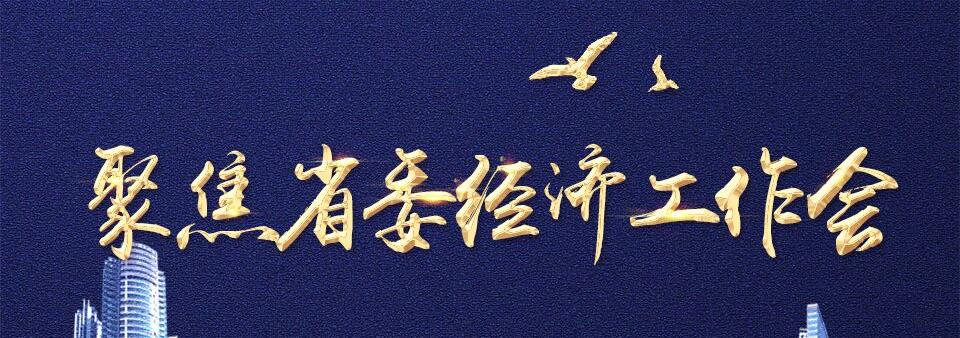 聚焦省委经济工作会